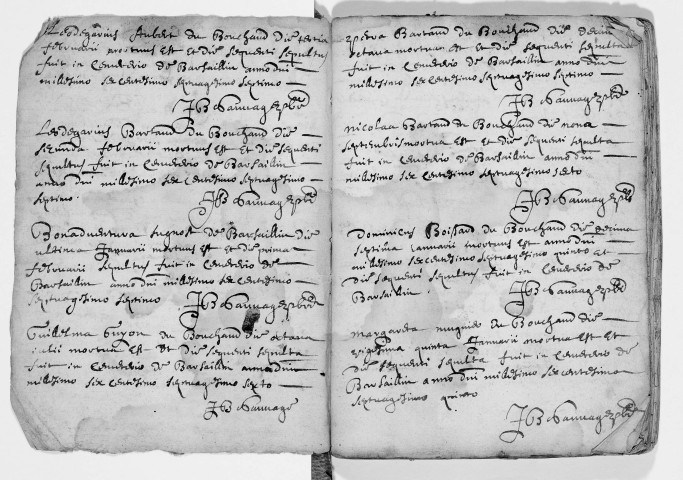 Leodegarius Aubert du Bouchaud die tertia
februarii mortuus est et die sequenti sepultus
fuit in Cemeterio de Barsaillin anno dni
millesimo sex centesimo septuagesimo septimo
JB Sauvage pbre
Leodegarius Bartaud du Bouchaud die
secunda februarii mortuus est et die sequenti
sepultus fuit in Cemeterio de Barsaillin
anno dni millesimo sex centesimo septuagesimo
septimo.
JB Sauvage pbre
Bonadventura de Barsaillin die
ultima Januarii mortuus est et die prima
februarii sepultus fuit in Cemeterio de
Barsaillin anno dni millesimo sex centesimo
septuagesimo septimo JB Sauvage pbre
Guillelma Guyon du Bouchaud die octava
julii mortua est et die sequenti sepulta
fuit in Cemeterio de Barsaillin anno dni
millesimo sex centesimo septuagesimo sexto
JB Sauvage
petra Bartaud du Bouchaud die decima
octava mortua est et die sequenti sepulta
fuit in Cemeterio de Barsaillin anno dni
millesimo sex centesimo septuagesimo septimo
JB Sauvage pbre
Nicolaa Bartaud du Bouchaud die nona
septembris mortua est et die sequenti sepulta
fuit in Cemeterio de Barsaillin anno dni
millesimo sex centesimo septuagesimo sexto
JB Sauvage pbre
Dominicus Boissard du Bouchaud die decima
septima Januarii mortuus est anno dni
millesimo sex centesimo septuagesimo quinto et
die sequenti sepultus fuit in Cemeterio de
Barsaillin JB Sauvage pbre
Margareta du Bouchaud die
vigesima quinta Januarii mortua est et
die sequenti sepulta fuit in Cemeterio de
Barsaillin anno dni millesimo sex centesimo
septuagesimo quinto
JB Sauvage pbre